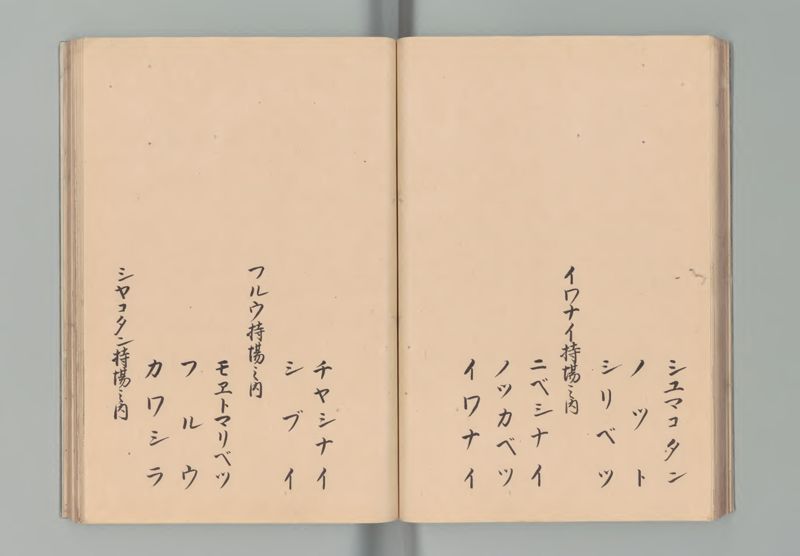 シユマコタン
ノツト
シリベツ
イワナイ持場之内
ニベシナイ
ノツカベツ
イワナイ
チヤシナイ
シブイ
フルウ持場之内
モヱトマリベツ
フルウ
カワシラ
シヤコタン持場之内